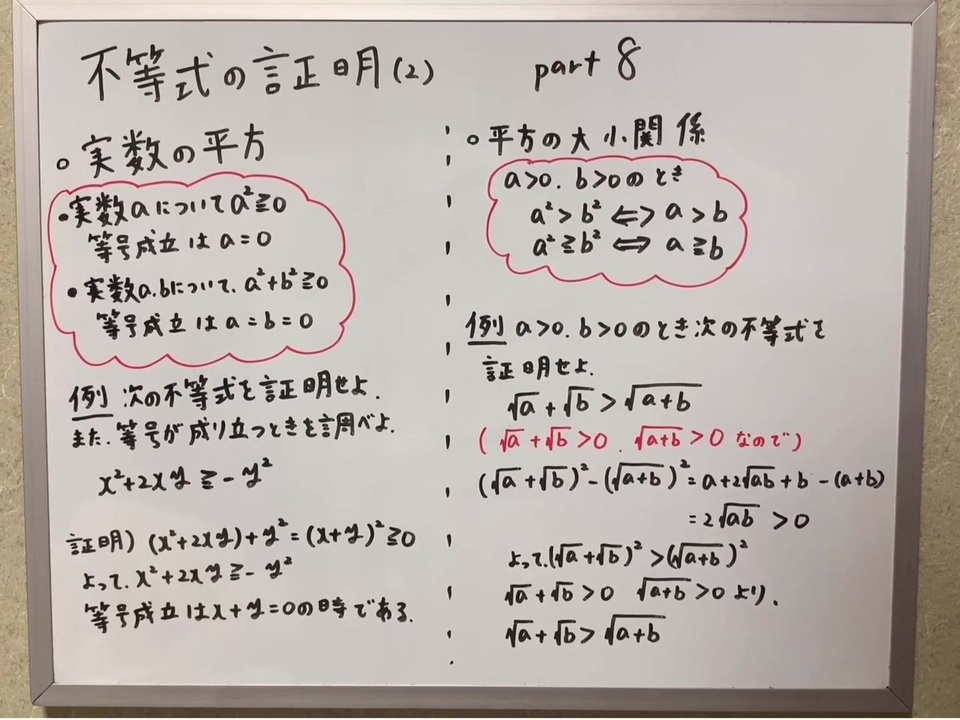 不等式の証明(2)
part 8
○実数の平方
・実数aについてa²≧0
等号成立はa=0
・実数a.bについて、a²+b²≧0
等号成立はa=b=0
例 次の不等式を証明せよ.
また、等号が成り立つときを調べよ.
x²+2xy≧-y²
証明) (x²+2xy)+y²=(x+y)²≧0
よって、x²+2xy≧-y²
等号成立はx+y=0の時である.
○平方の大小関係
a>0. b>0のとき
a²>b² ⇔ a>b
a²≧b² ⇔ a≧b
例 a>0. b>0のとき次の不等式を
証明せよ.
√a+√b>√(a+b)
(√a+√b>0、√(a+b)>0なので)
(√a+√b)²-(√(a+b))²=a+2√(ab)+b-(a+b)
=2√(ab)>0
よって、(√a+√b)²>(√(a+b))²
√a+√b>0 √(a+b)>0より、
√a+√b>√(a+b)